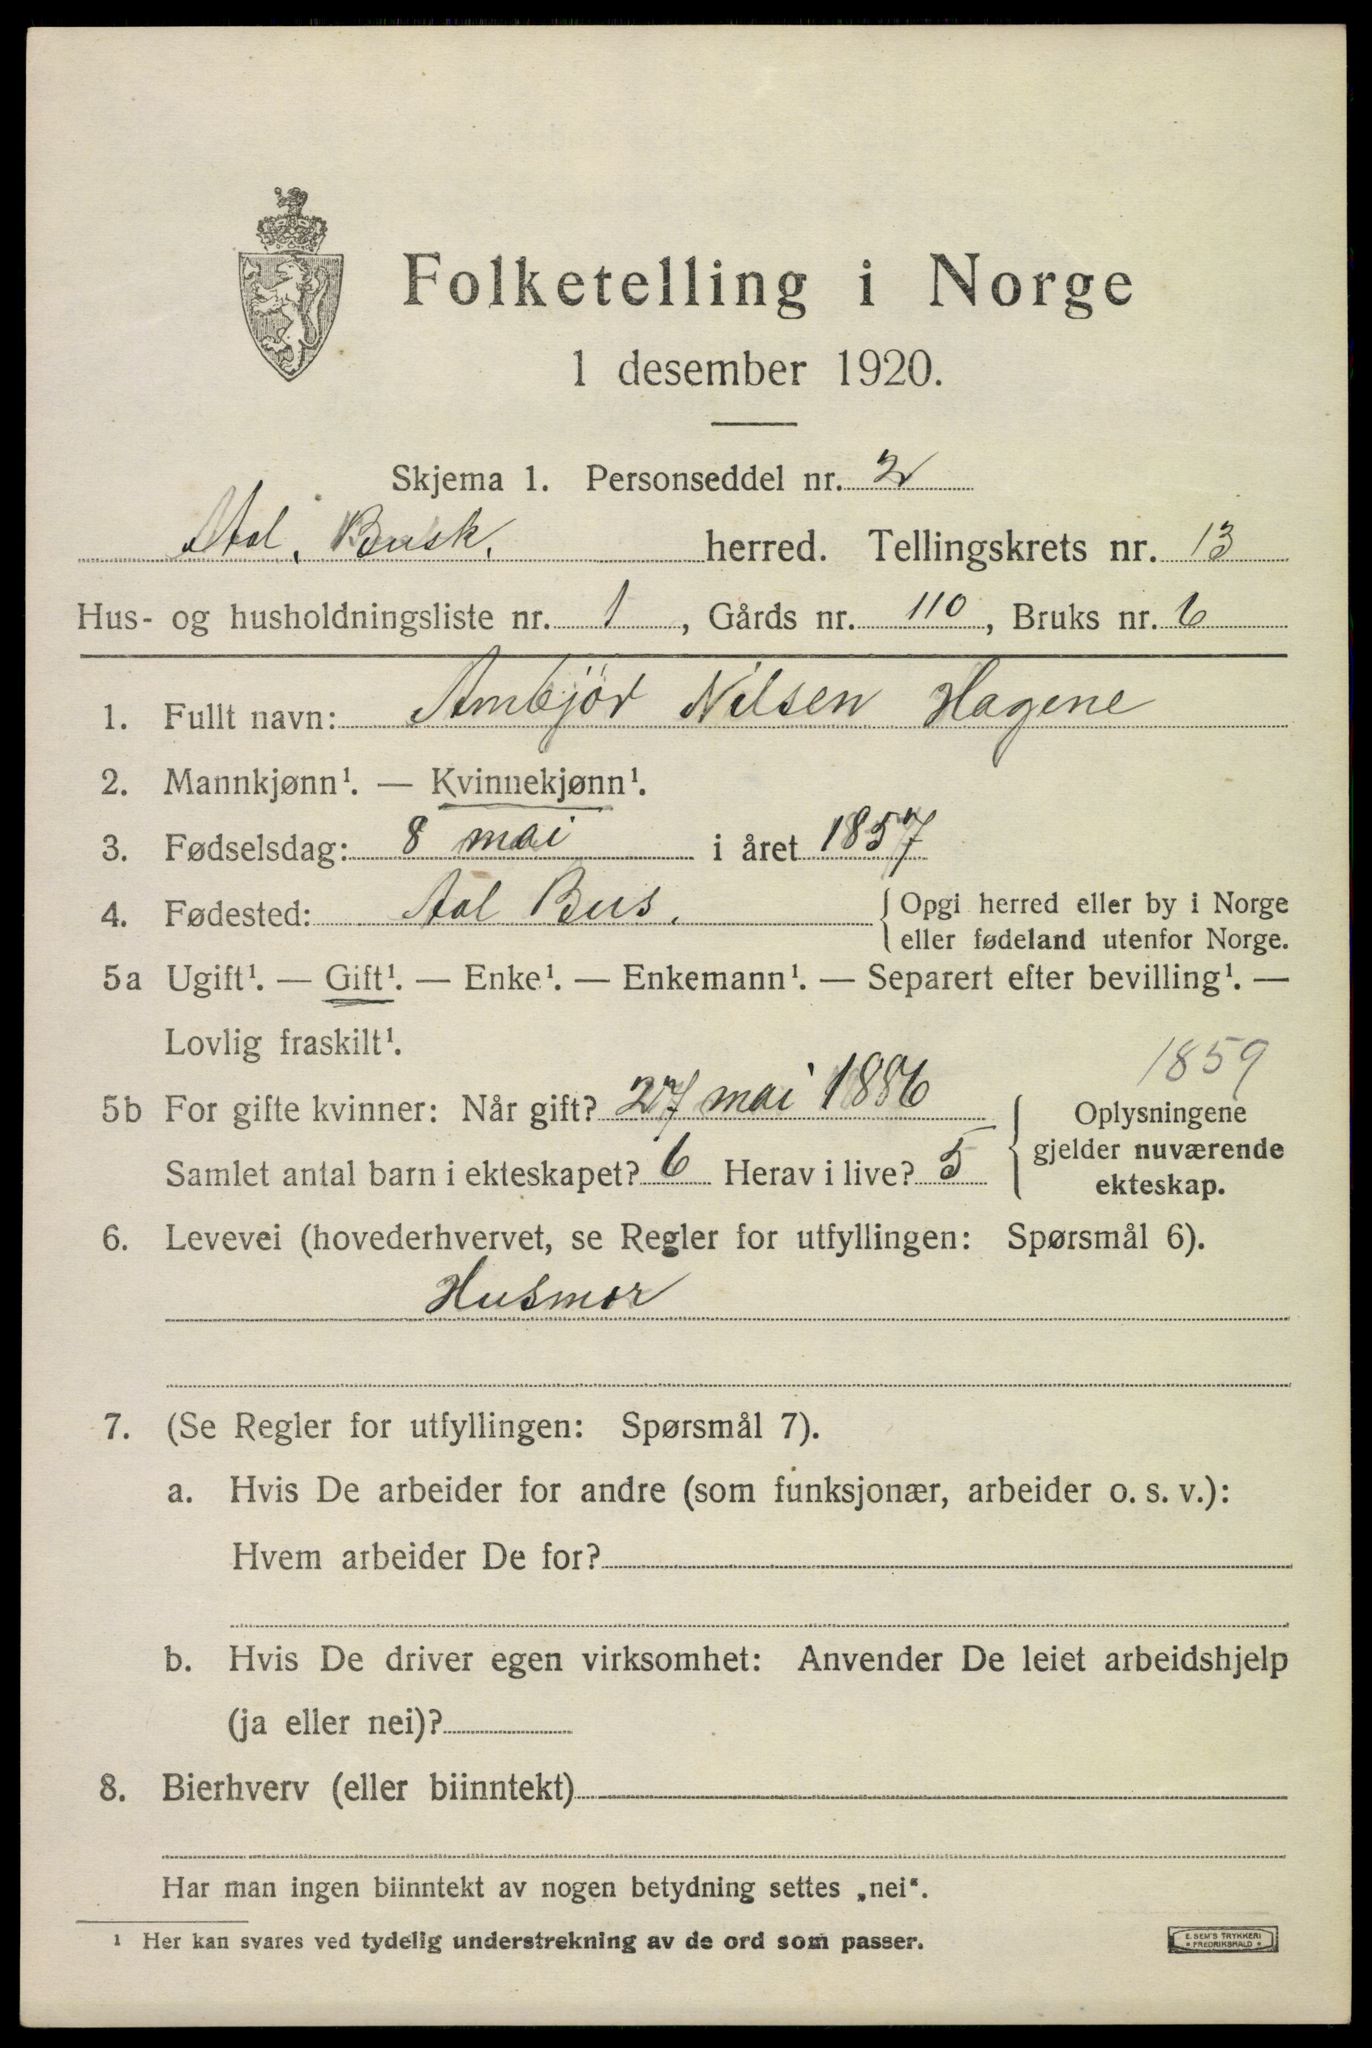 Folketelling i Norge
1 desember 1920.
Skjema 1. Personseddel nr. 2
Aal. Busk. herred. Tellingskrets nr. 13
Hus- og husholdningsliste nr. 1, Gårds nr. 110, Bruks nr. 6
1. Fullt navn: Ambjör Nilsen Hagene
2. Mannkjønn¹. — Kvinnekjønn¹.
3. Fødselsdag: 8 mai i året 1857
4. Fødested: Aal Bus. { Opgi herred eller by i Norge
eller fødeland utenfor Norge.
5a Ugift¹. — Gift¹. — Enke¹. — Enkemann¹. — Separert efter bevilling¹. —
Lovlig fraskilt¹.
1859
5b For gifte kvinner: Når gift? 27 mai 1886 Oplysningene
gjelder nuværende
Samlet antal barn i ekteskapet? 6 Herav i live? 5 ekteskap.
6. Levevei (hovederhvervet, se Regler for utfyllingen: Spørsmål 6).
Husmor
7. (Se Regler for utfyllingen: Spørsmål 7).
a. Hvis De arbeider for andre (som funksjonær, arbeider o. s. v.):
Hvem arbeider De for?
b. Hvis De driver egen virksomhet: Anvender De leiet arbeidshjelp
(ja eller nei)?
8. Bierhverv (eller biinntekt)
Har man ingen biinntekt av nogen betydning settes „nei“.
¹ Her kan svares ved tydelig understrekning av de ord som passer.
E. SEM'S TRYKKERI
* FREDRIKSHALD *